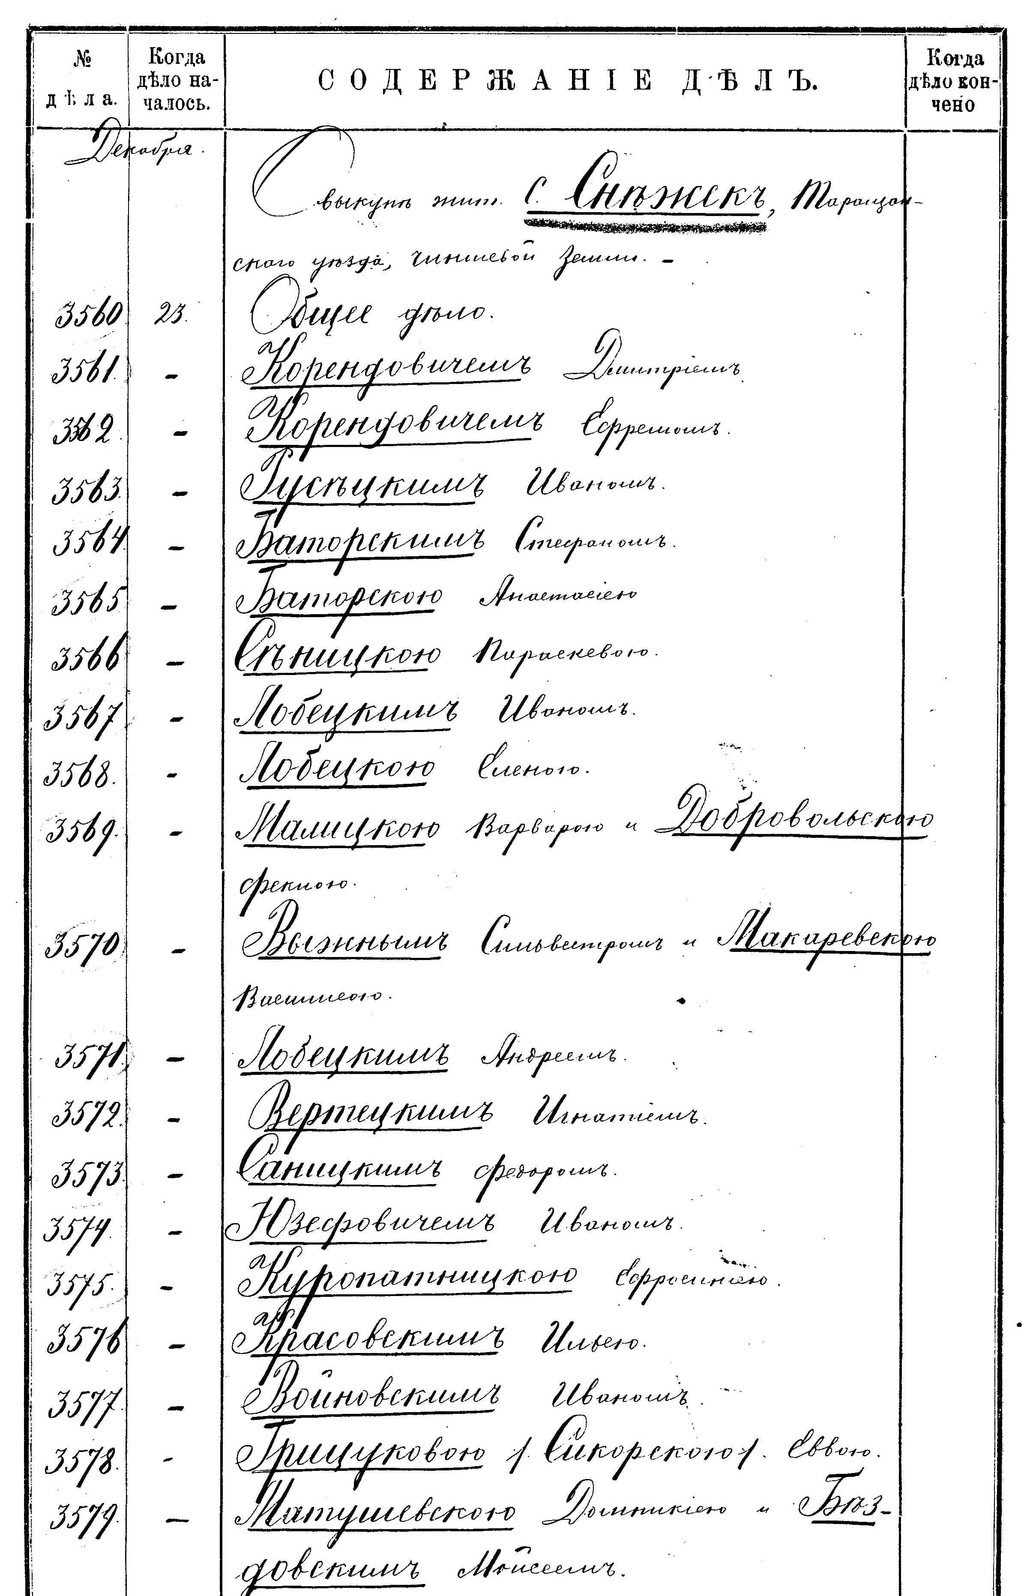 № дѣла.
Когда дѣло на-чалось.
СОДЕРЖАНІЕ ДѢЛЪ.
Когда дѣло кон-чено
Декабря.
О выкупѣ жит. с. Снѣжекъ, Таращан-
скаго уѣзда, чиншевой земли. -
3560 23. Общее дѣло.
3561. - Корендовичемъ Дмитріемъ
3562. - Корендовичемъ Ефремомъ.
3563. - Гусѣцкимъ Иваномъ.
3564. - Баторскимъ Стефаномъ.
3565 - Баторскою Анастасіею
3566 - Сѣницкою Параскевою.
3567 - Лобецкимъ Иваномъ.
3568. - Лобецкою Еленою.
3569. - Малицкою Варварою и Добровольскою
Феклою.
3570 - Выжнымъ Сильвестромъ и Макаревскою
Василисою.
3571. - Лобецкимъ Андреемъ.
3572. - Вертецкимъ Игнатіемъ.
3573 - Саницкимъ Федоромъ.
3574. - Юзефовичемъ Иваномъ.
3575. - Куропатницкою Ефросиніею.
3576 - Красовскимъ Ильею.
3577. - Войновскимъ Иваномъ
3578. - Грищуковою /. Сикорскою /. Еввою.
3579. - Матушевскою Домникіею и Бѣз-
довскимъ Мойсеемъ.